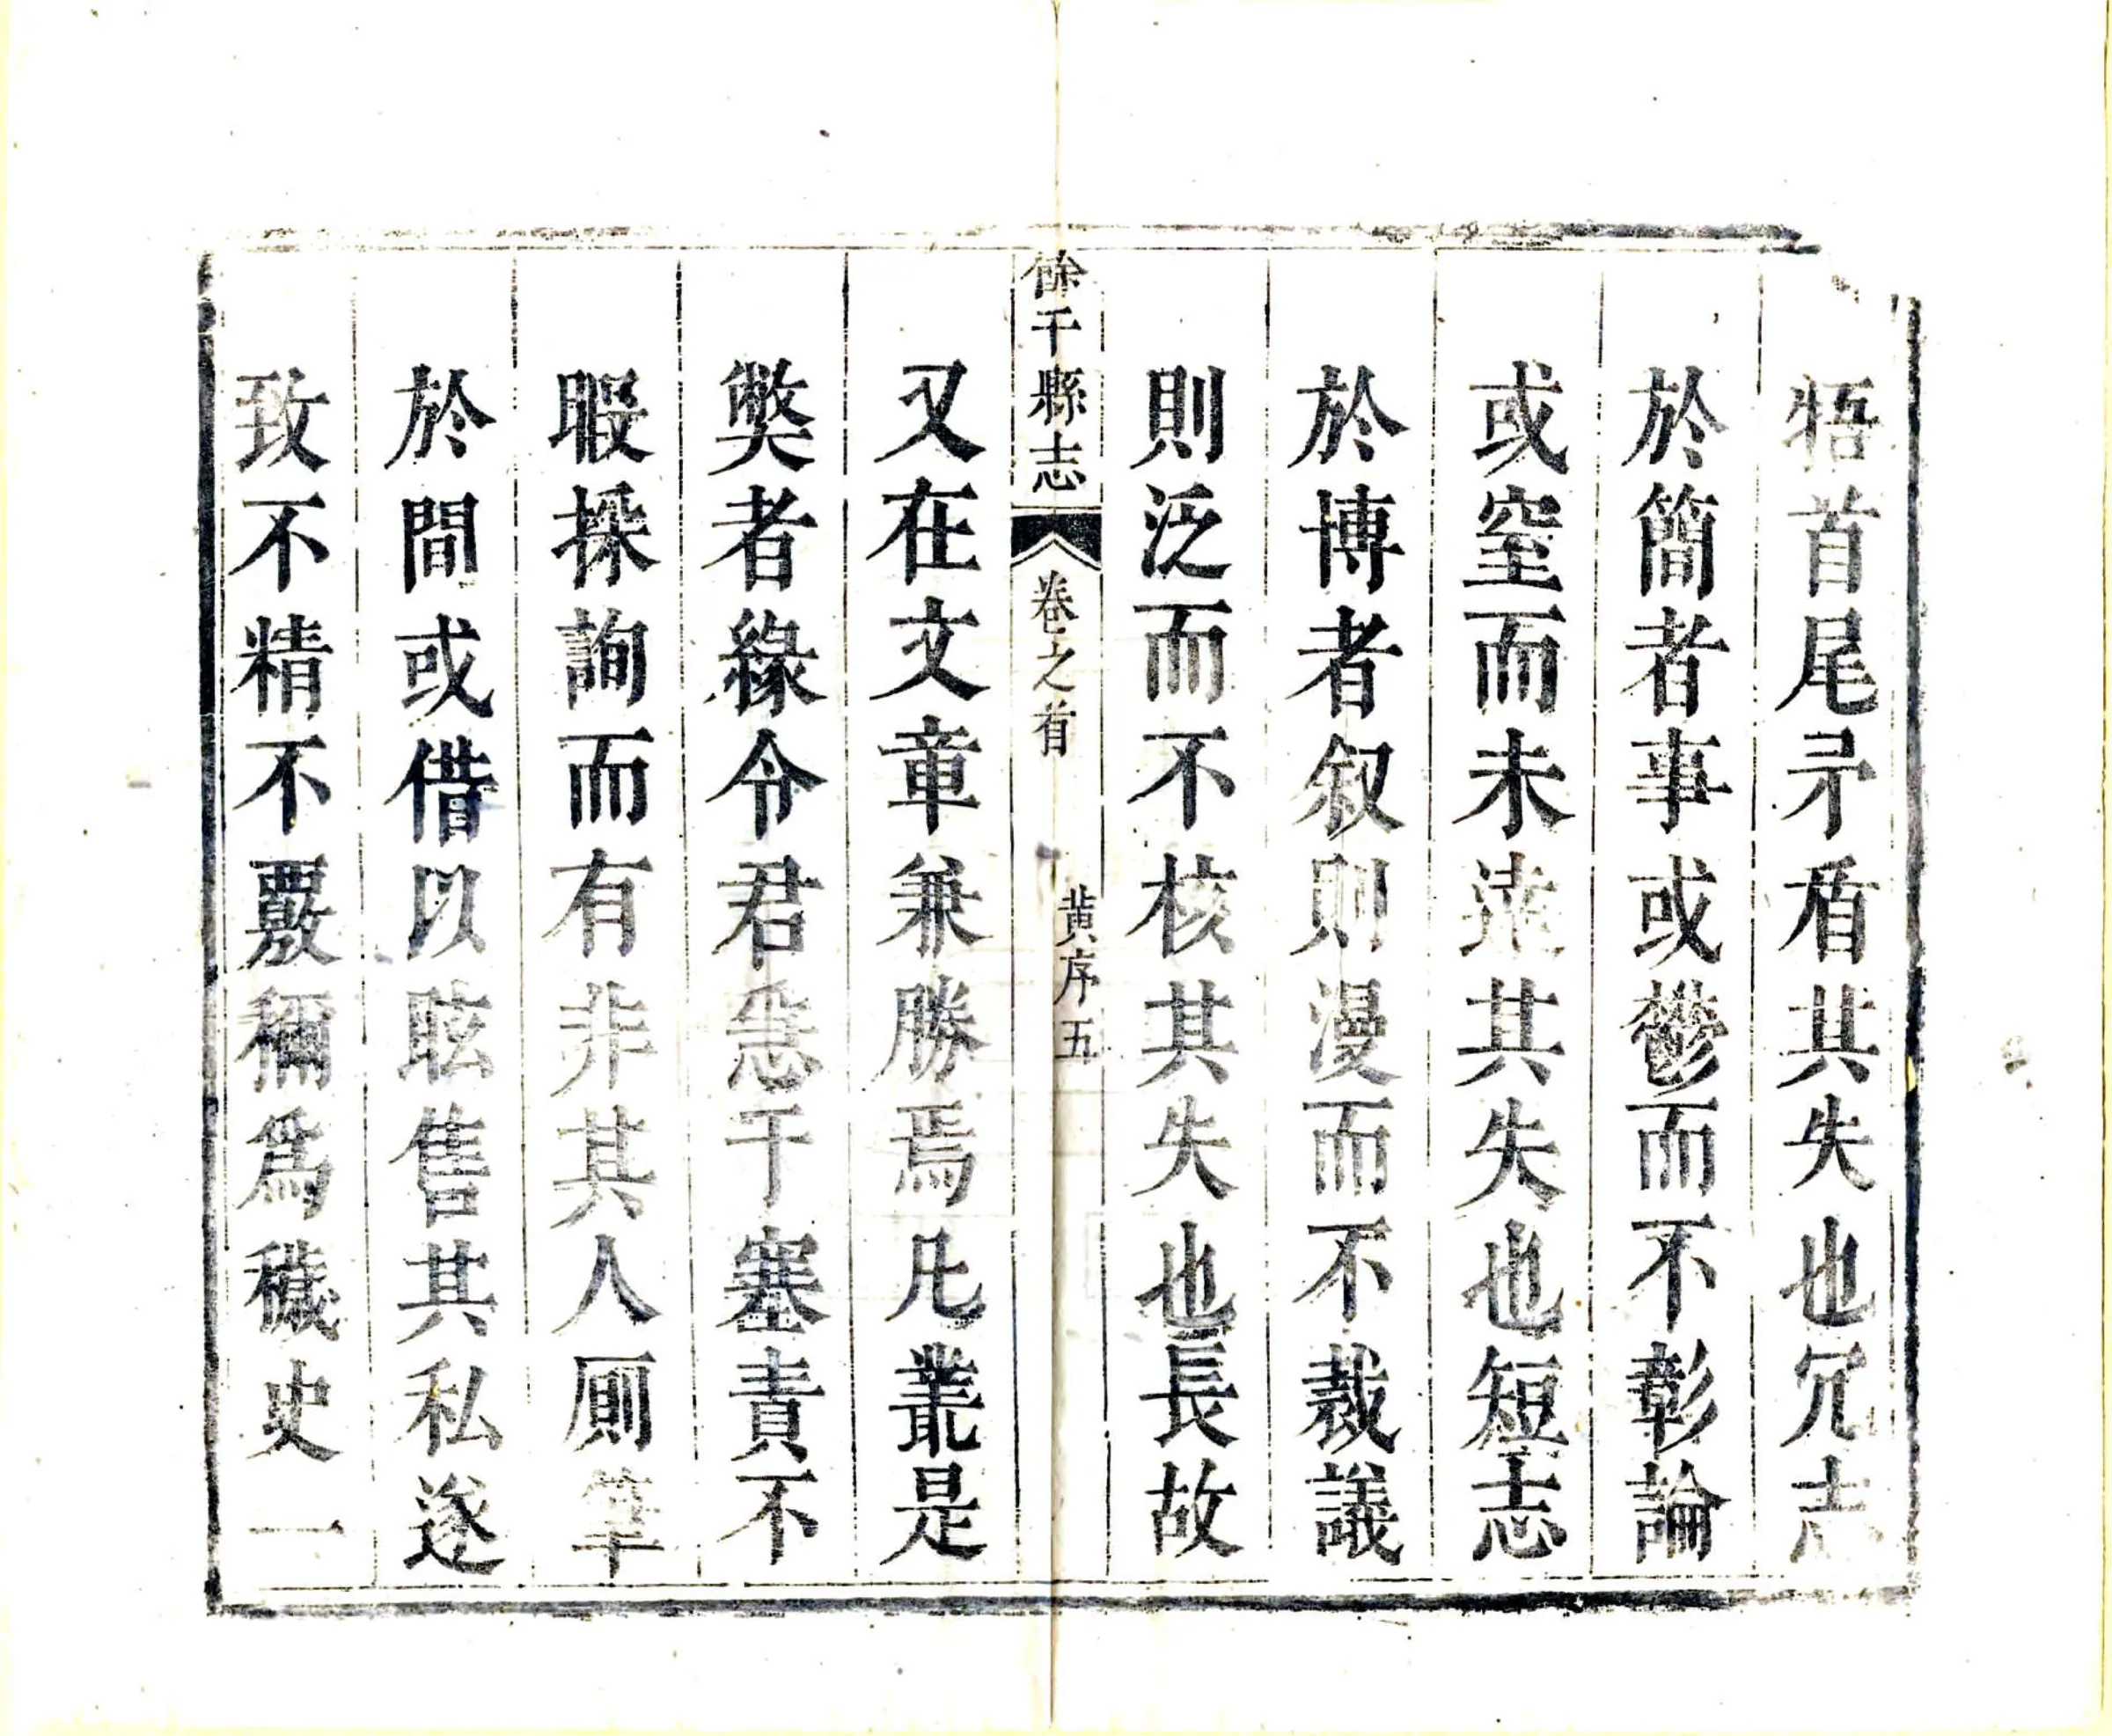 牾首尾矛盾其失也冗志
於簡者事或鬱而不彰論
或窒而未達其失也短志
於博者叙則漫而不裁議
則泛而不核其失也長故
餘干縣志
卷之首
黄序五
又在文章兼勝焉凡叢是
獘者緣令君急于塞責不
暇採詢而有非其人厠筆
於間或借以眩售其私遂
致不精不覈穪爲穢史一